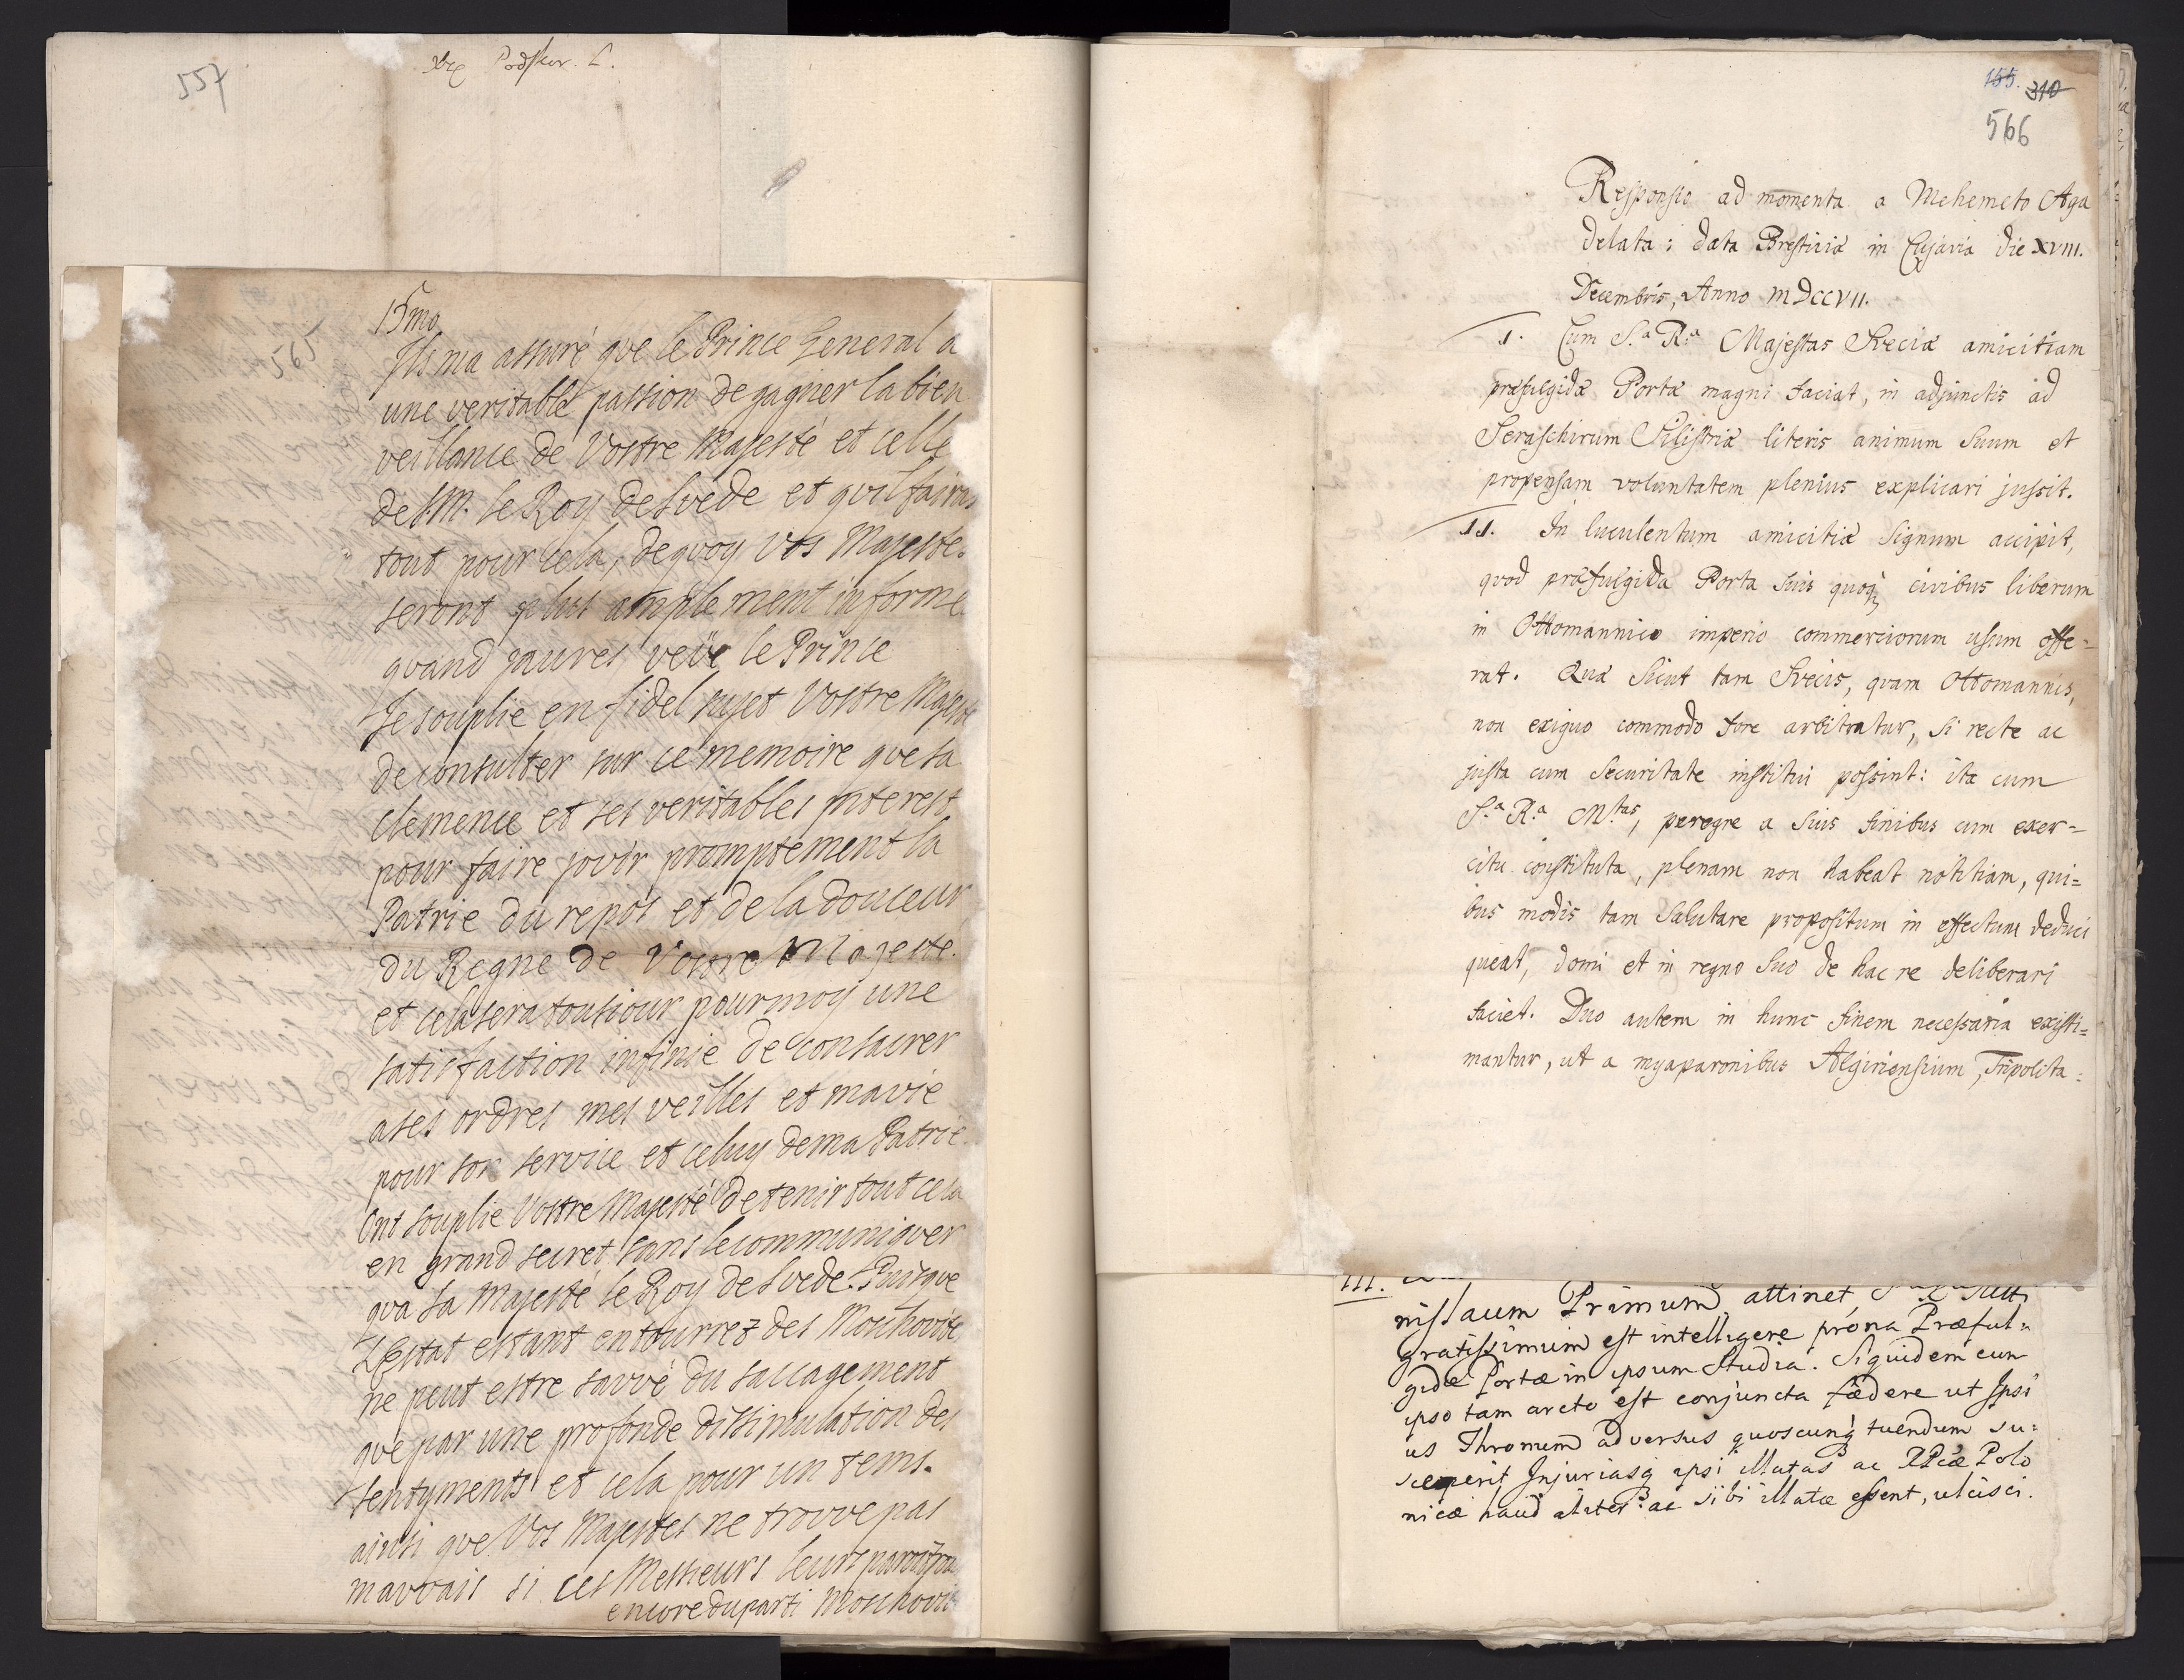 557
Podskar. L.
565
15mo
Ils ma assuré que le Prince General a
une veritable passion de gagner la bien
veillance de Vostre Majesté et celle
de S.M. le Roy de Svede et quil faira
tout pour cela, de quoy Vos Majestes
seront plus amplement informe
quand jaures veüe le Prince
Je souplie en fidel sujet Vostre Majeste
de consulter sur ce memoire que sa
clemence et ses veritables interest
pour faire jovir promptement la
Patrie du repos et de la douceur
du Regne de Vostre Majesté.
et cela sera tousiour pour moy une
satisfaction infinie de consacrer
a ses ordres mes veilles et ma vie
pour son service et celuy de ma Patrie.
Ont souplie Vostre Majesté de tenir tout cela
en grand secret, sans le communiquer
qva sa Majesté le Roy de Svede. Puisque
L'Estat estant entourrez des Moschovite
ne peut estre savvé du saccagement
que par une profonde dissimulation des
sentyments et cela pour un tems.
ainsi que Vos Majestes ne trovve pas
mavvais si ces Messieurs leurs
encore du parti Moschovit
155. 310
566
Responsio ad momenta a Mehemeto Aga
delata: data Bresticiæ in Cujavia die XVIII.
Decembris, Anno MDCCVII.
I. Cum S.a R.a Majestas Sveciæ amicitiam
præfulgidæ Portæ magni faciat, in adjunctis ad
Seraschirum Silistriæ literis animum suum et
propensam voluntatem plenius explicari jussit.
II. In luculentum amicitiæ signum accipit,
quod præfulgida Porta suis quoq; civibus liberum
in Ottomannico imperio commerciorum usum offe=
rat. Quæ sicut tam Svecis, quam Ottomannis,
non exiguo commodo fore arbitratur, si recte ac
justa cum securitate institui possint: ita cum
S.a R.a M.tas, peregre a suis finibus cum exer=
citu constituta, plenam non habeat notitiam, qui=
bus modis tam salutare propositum in effectum deduci
queat, domi et in regno suo de hac re deliberari
faciet. Duo autem in hunc finem necessaria existi=
mantur, ut a myaparonibus Algiriensium, Tripolita=
III.
nislaum Primum attinet,
gratissimum est intelligere prona Præful=
gidæ Portæ in ipsum studia. Siquidem cum
ipso tam arcto est conjuncta fœdere ut Ipsi
us Thronum adversus quoscunq; tuendum su=
sceperit Injuriasq; ipsi illatas ac RPcæ Polo
nicæ haud aliter ac sibi illatæ essent, ulcisci.